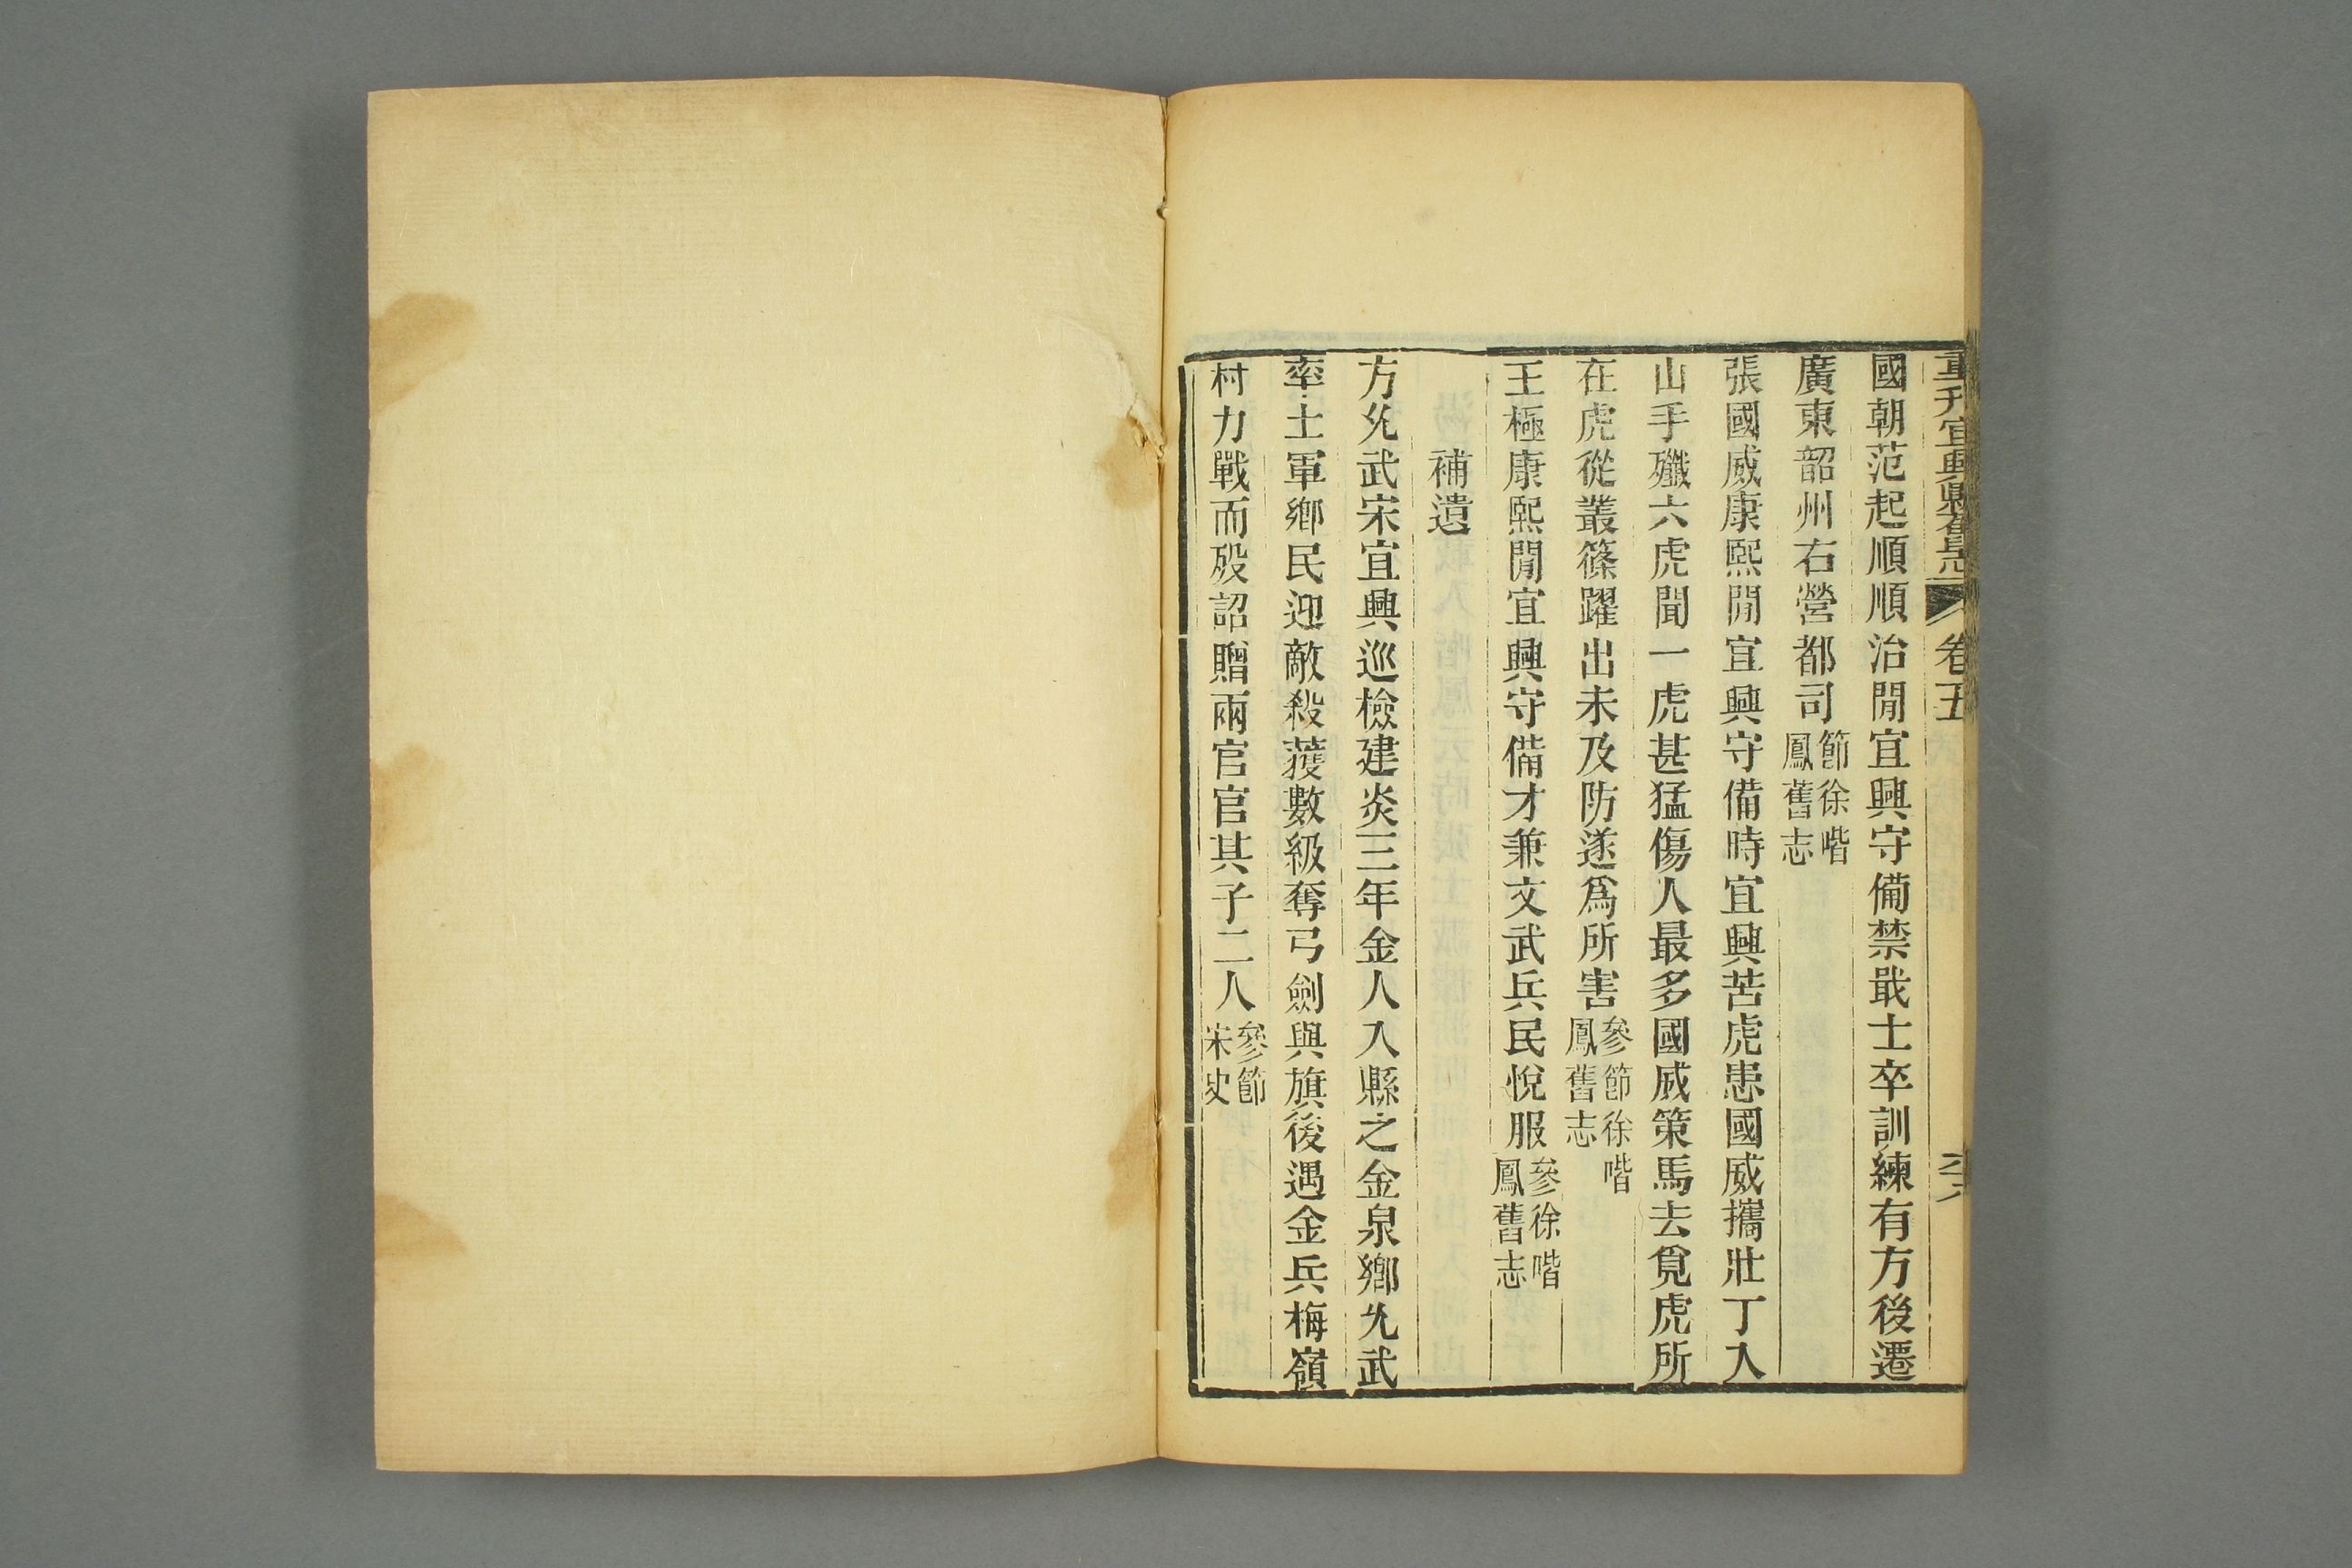 重刋宜興縣舊志 卷五
國朝范起順順治閒宜興守備禁戢士卒訓練有方後遷
廣東韶州右營都司節徐喈鳳舊志
張國威康熙閒宜興守備時宜興苦虎患國威攜壯丁入
山手殲六虎聞一虎甚猛傷人最多國威策馬去覓虎所
在虎從叢篠躍出未及防遂爲所害參節徐喈鳳舊志
王極康熙閒宜興守備才兼文武兵民悅服參徐喈鳳舊志
補遺
方允武宋宜興巡檢建炎三年金人入縣之金泉鄉允武
率土軍鄉民迎敵殺蒦數級奪弓劍與旗後遇金兵梅嶺
村力戰而歿詔贈兩官官其子二人參節宋史